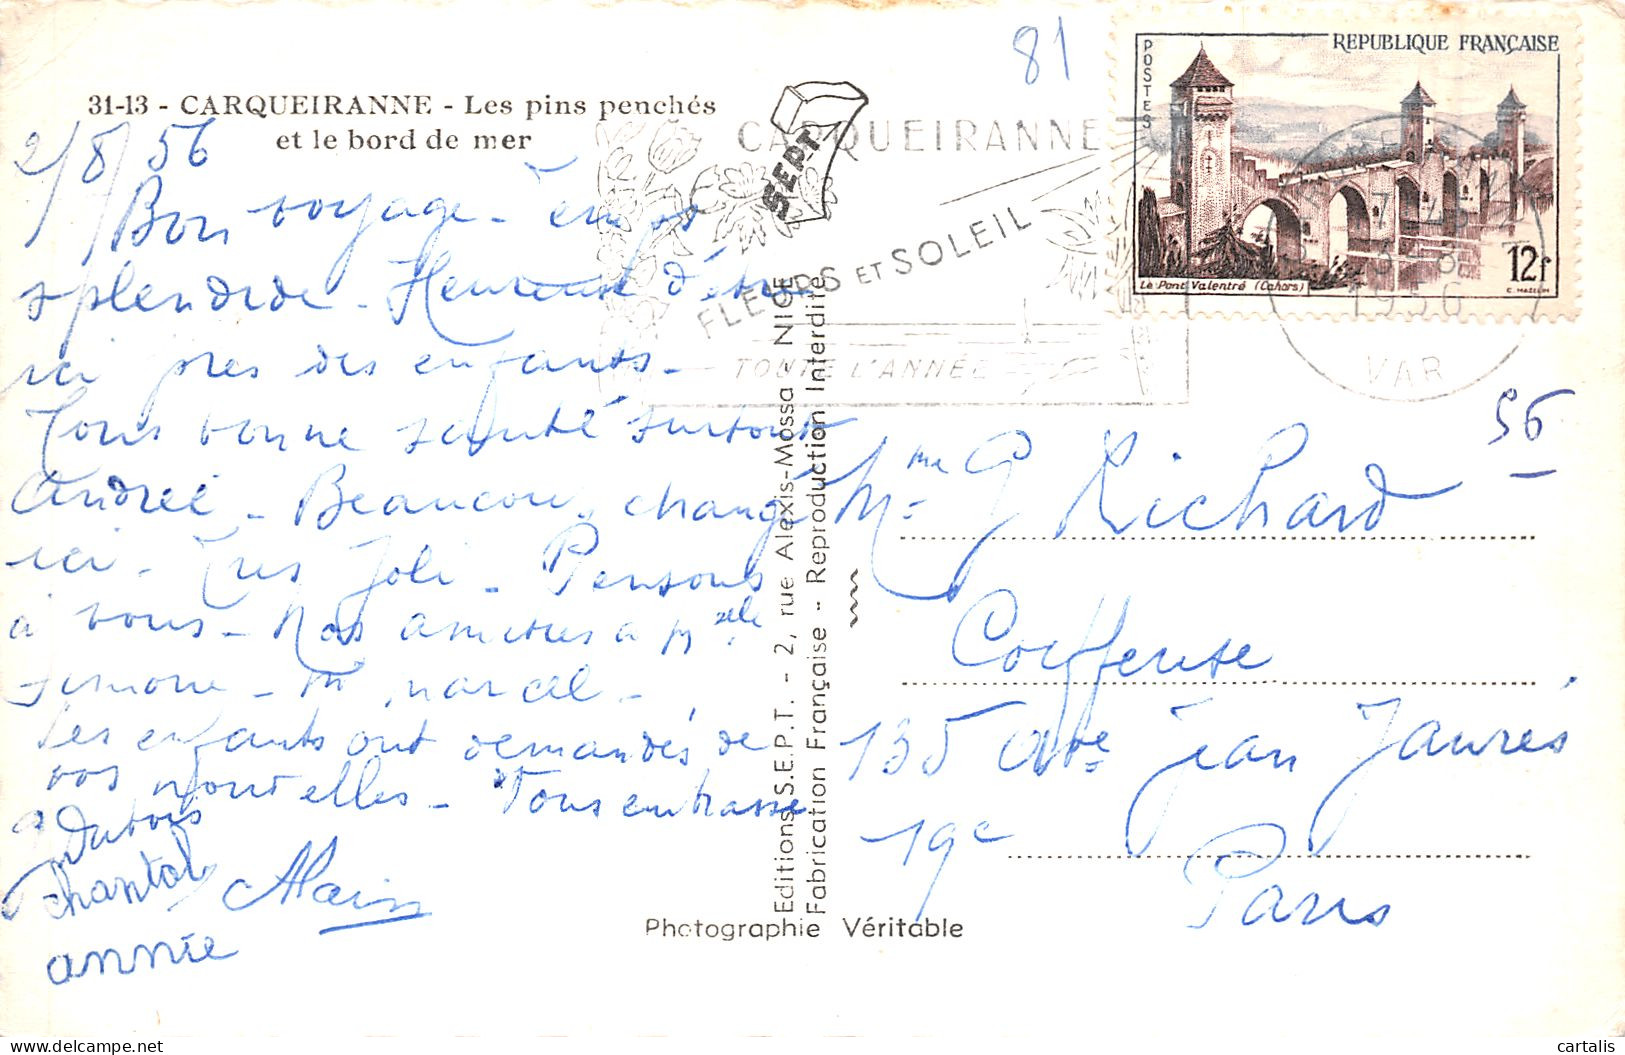 31-13 - CARQUEIRANNE - Les pins penchés
et le bord de mer
2/8/56
Bon voyage - temps
splendide. Heureuse d'être
ici près des enfants -
Tous bonne santé surtout
Andrée - Beaucoup changé
ici - Très Joli - Pensons
à vous - Nos amitiés a Mzelle
Simone - M Marcel -
Les enfants ont demandés de
vos nouvelles - Tous embrasse
Dubois
Chantal Alain
annie
SEPT
Editions S.E.P.T. - 2, rue Alexis-Mossa - NICE
Fabrication Française - Reproduction Interdite
Photographie Véritable
81
CARQUEIRANNE
FLEURS ET SOLEIL
TOUTE L'ANNÉE
POSTES
REPUBLIQUE FRANÇAISE
Le Pont Valentré (Cahors)
12f
C. HAZELIN
1956
VAR
56
Mme G Richard
Coiffeuse
135 Ave Jean Jaurés
19e
Paris
cartalis